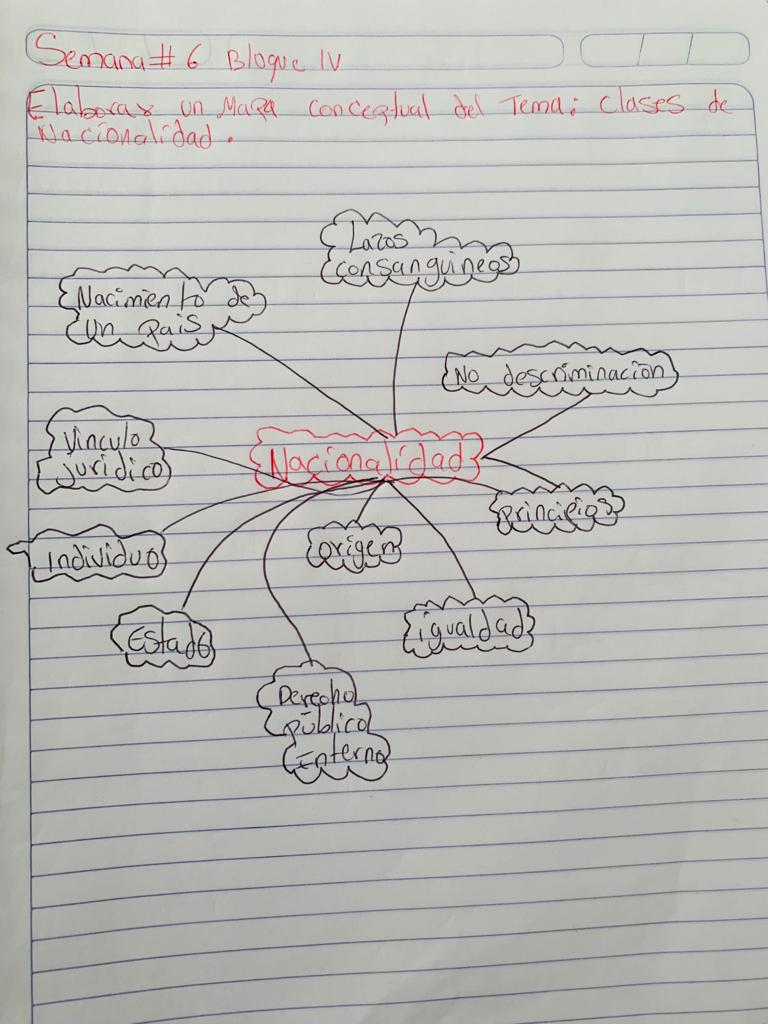 Semana # 6 Bloque IV
Elaborar un Mapa conceptual del Tema: Clases de
Nacionalidad.
Lazos
consanguineos
Nacimiento de
un pais
No descriminación
Vinculo
jurídico
Nacionalidad
principios
individuo
origen
Estado
igualdad
Derecho
público
Interno